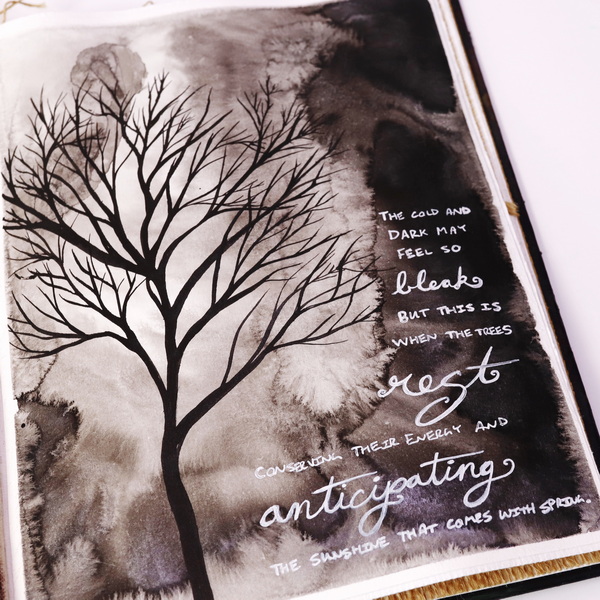 THE COLD AND
DARK MAY
FEEL SO
bleak
BUT THIS IS
WHEN THE TREES
rest
CONSERVING THEIR ENERGY AND
anticipating
THE SUNSHINE THAT COMES WITH SPRING.